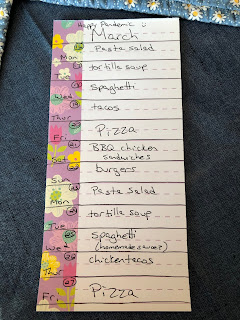 Happy Pandemic :)
March
Pasta salad
Mon
tortilla soup
Tue
Spaghetti
Wed
19 tacos
Thur
20 Pizza
Fri
21 BBQ chicken
sandwiches
Sat
22 burgers
Sun
23 Pasta salad
Mon
tortilla soup
Tue
Spaghetti
(homemade sauce)
Wed
26 chicken tacos
Thur
27 Pizza
Fri